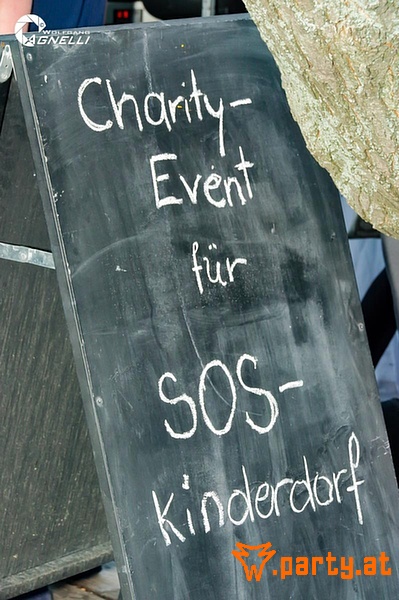 WOLFGANG
AGNELLI
Charity-
Event
für
SOS-
Kinderdorf
.party.at